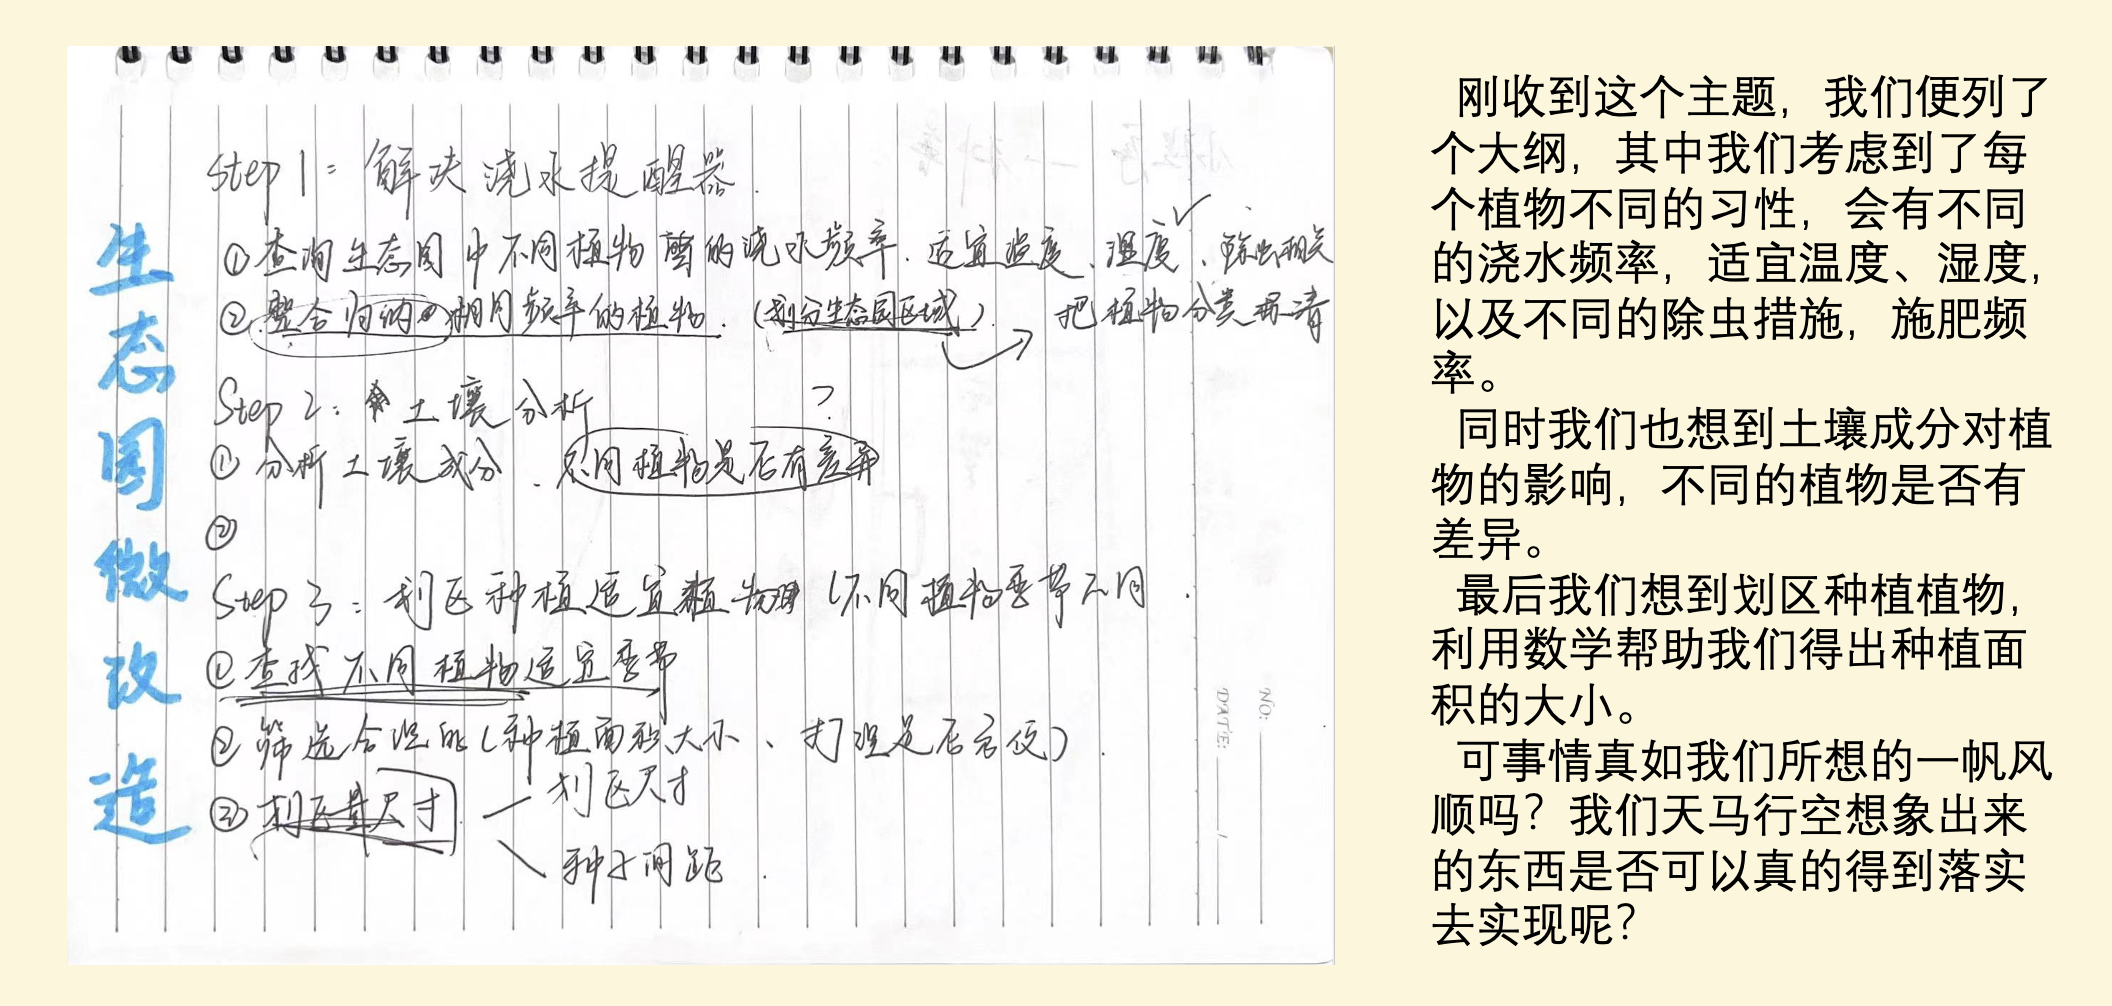 生态园微改造
Step 1：解决浇水提醒器.
①查询生态园中不同植物 的浇水频率.适宜温度、湿度、除虫相关
②整合归纳 相同频率的植物.(划分生态园区域) 把植物分类弄清
Step 2：土壤分析
?
①分析土壤成分.不同植物是否有差异
②
Step 3：划区种植适宜植物(不同植物季节不同.
①查找不同植物适宜季节
②筛选合理的(种植面积大小、打理是否方便).
③划区量尺寸
划区尺寸
种子间距.
NO:
DATE:
刚收到这个主题，我们便列了
个大纲，其中我们考虑到了每
个植物不同的习性，会有不同
的浇水频率，适宜温度、湿度，
以及不同的除虫措施，施肥频
率。
同时我们也想到土壤成分对植
物的影响，不同的植物是否有
差异。
最后我们想到划区种植植物，
利用数学帮助我们得出种植面
积的大小。
可事情真如我们所想的一帆风
顺吗？我们天马行空想象出来
的东西是否可以真的得到落实
去实现呢？